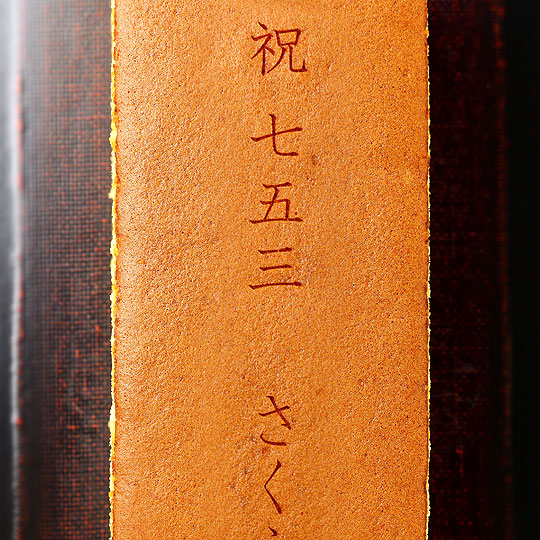 祝 七五三 さく